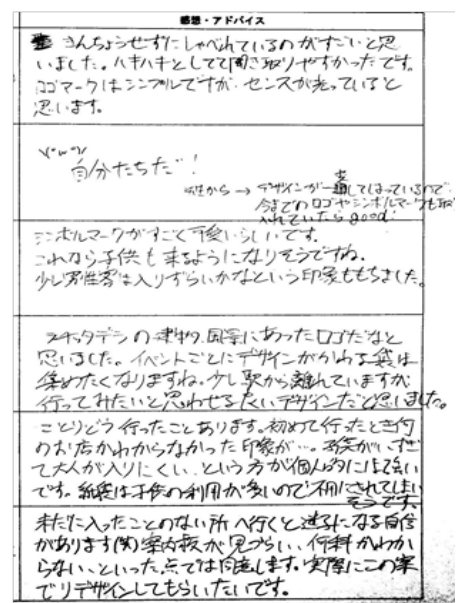 感想・アドバイス
きんちょうせずにしゃべれているのがすごいと思
いました。ハキハキとしてて聞き取りやすかったです。
ロゴマークはシンプルですが、センスが光っていると
思います。
\(^o^)/
自分たちだ!
先生から → デザインが一
してしまっているので、
今までのロゴやシンボルマークも取
入れていたらgood!
シンボルマークがすごく可愛いらしいです。
これなら子供も来るようになりそうですね。
少し男性客は入りずらいかなという印象ももちました。
スキッタデラの建物、風景にあったロゴだなと
思いました。イベントごとにデザインがかわる袋は
集めたくなりますね。少し駅から離れていますが
行ってみたいと思わせるくらいデザインだと思いました。
ことりどう行ったことあります。初めて行ったとき何
のお店かわからなかった印象が…。
て大人が入りにくい、という方が個人的には強い
です。紙袋は子供の利用が多いので不用にされてしまい
そうです。
未だに入ったことのない所へ行くと迷子になる自信
があります(笑)案内板が見づらい、何科かわか
らない、といった点では同感します。実際にこの案
でリデザインしてもらいたいです。